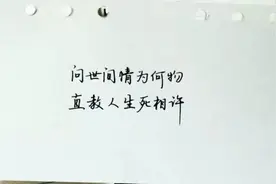 问世间情为何物
直教人生死相许